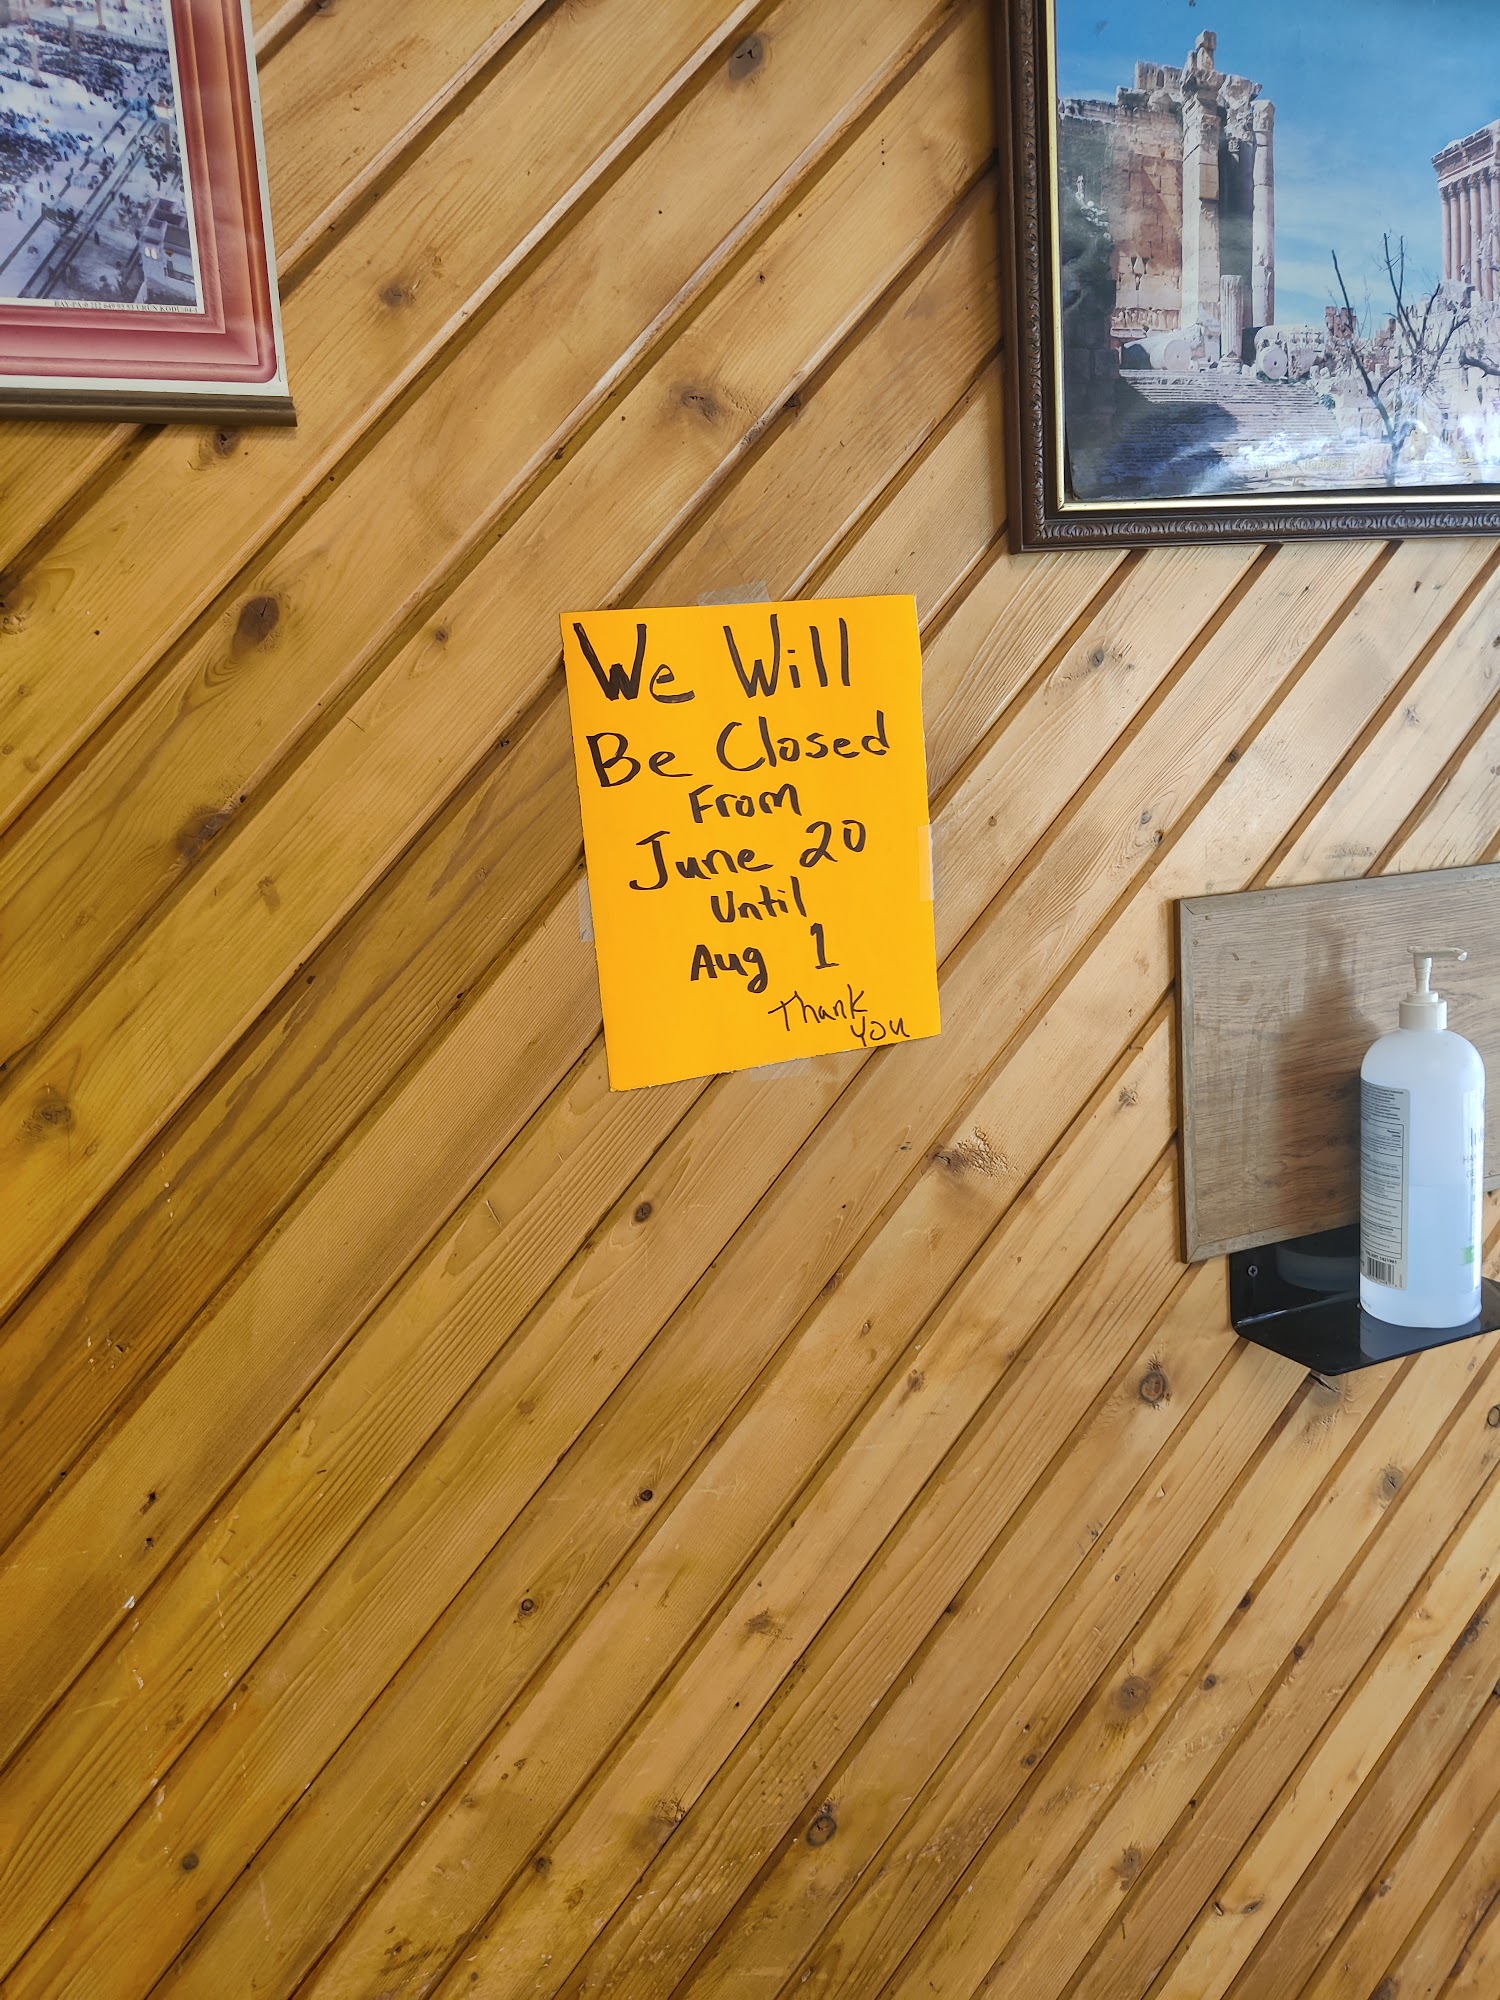 We Will
Be Closed
From
June 20
Until
Aug 1
Thank
You